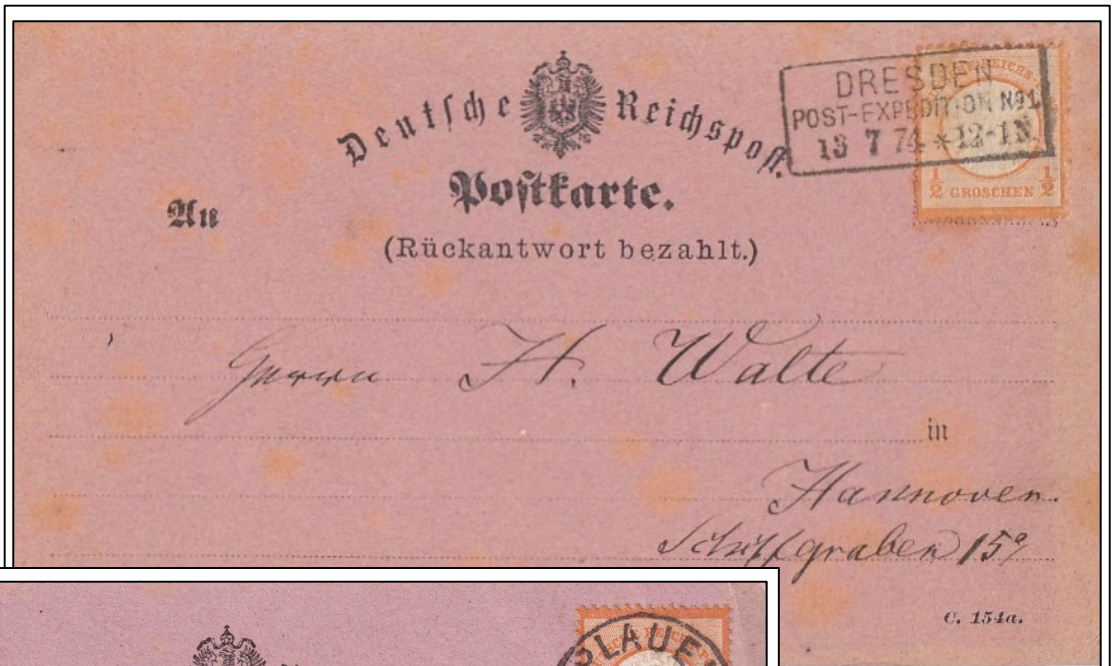 Deutsche Reichspost.
Postkarte.
An
(Rückantwort bezahlt.)
DRESDEN
POST-EXPEDITION No 1
13 7 74 * 12-1 N.
½ GROSCHEN ½
Herrn H. Walte
in
Hannover.
Schiffgraben 15
C. 154a.